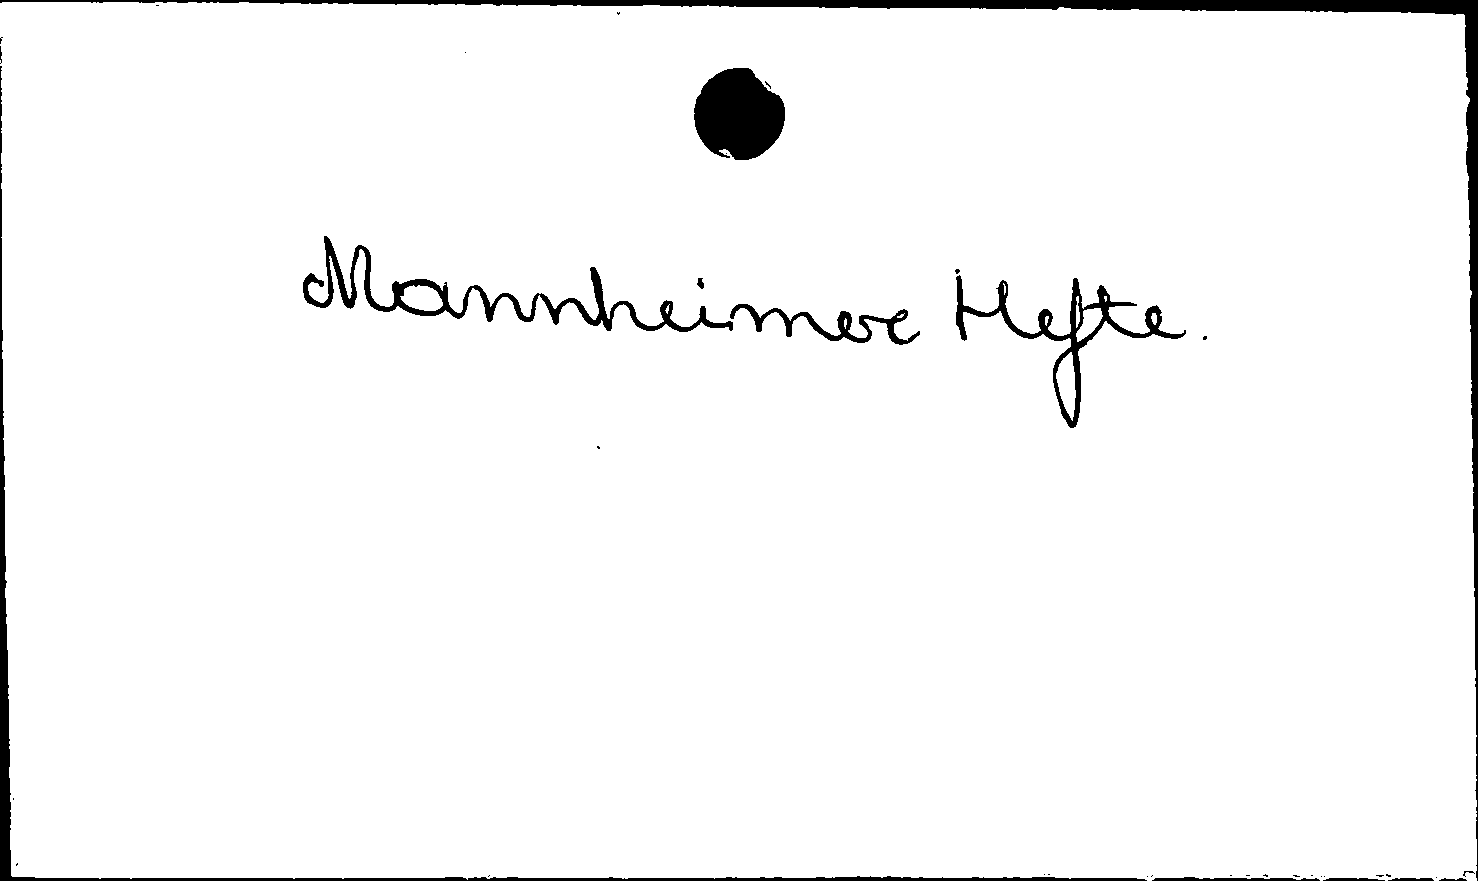 Mannheimer Hefte.